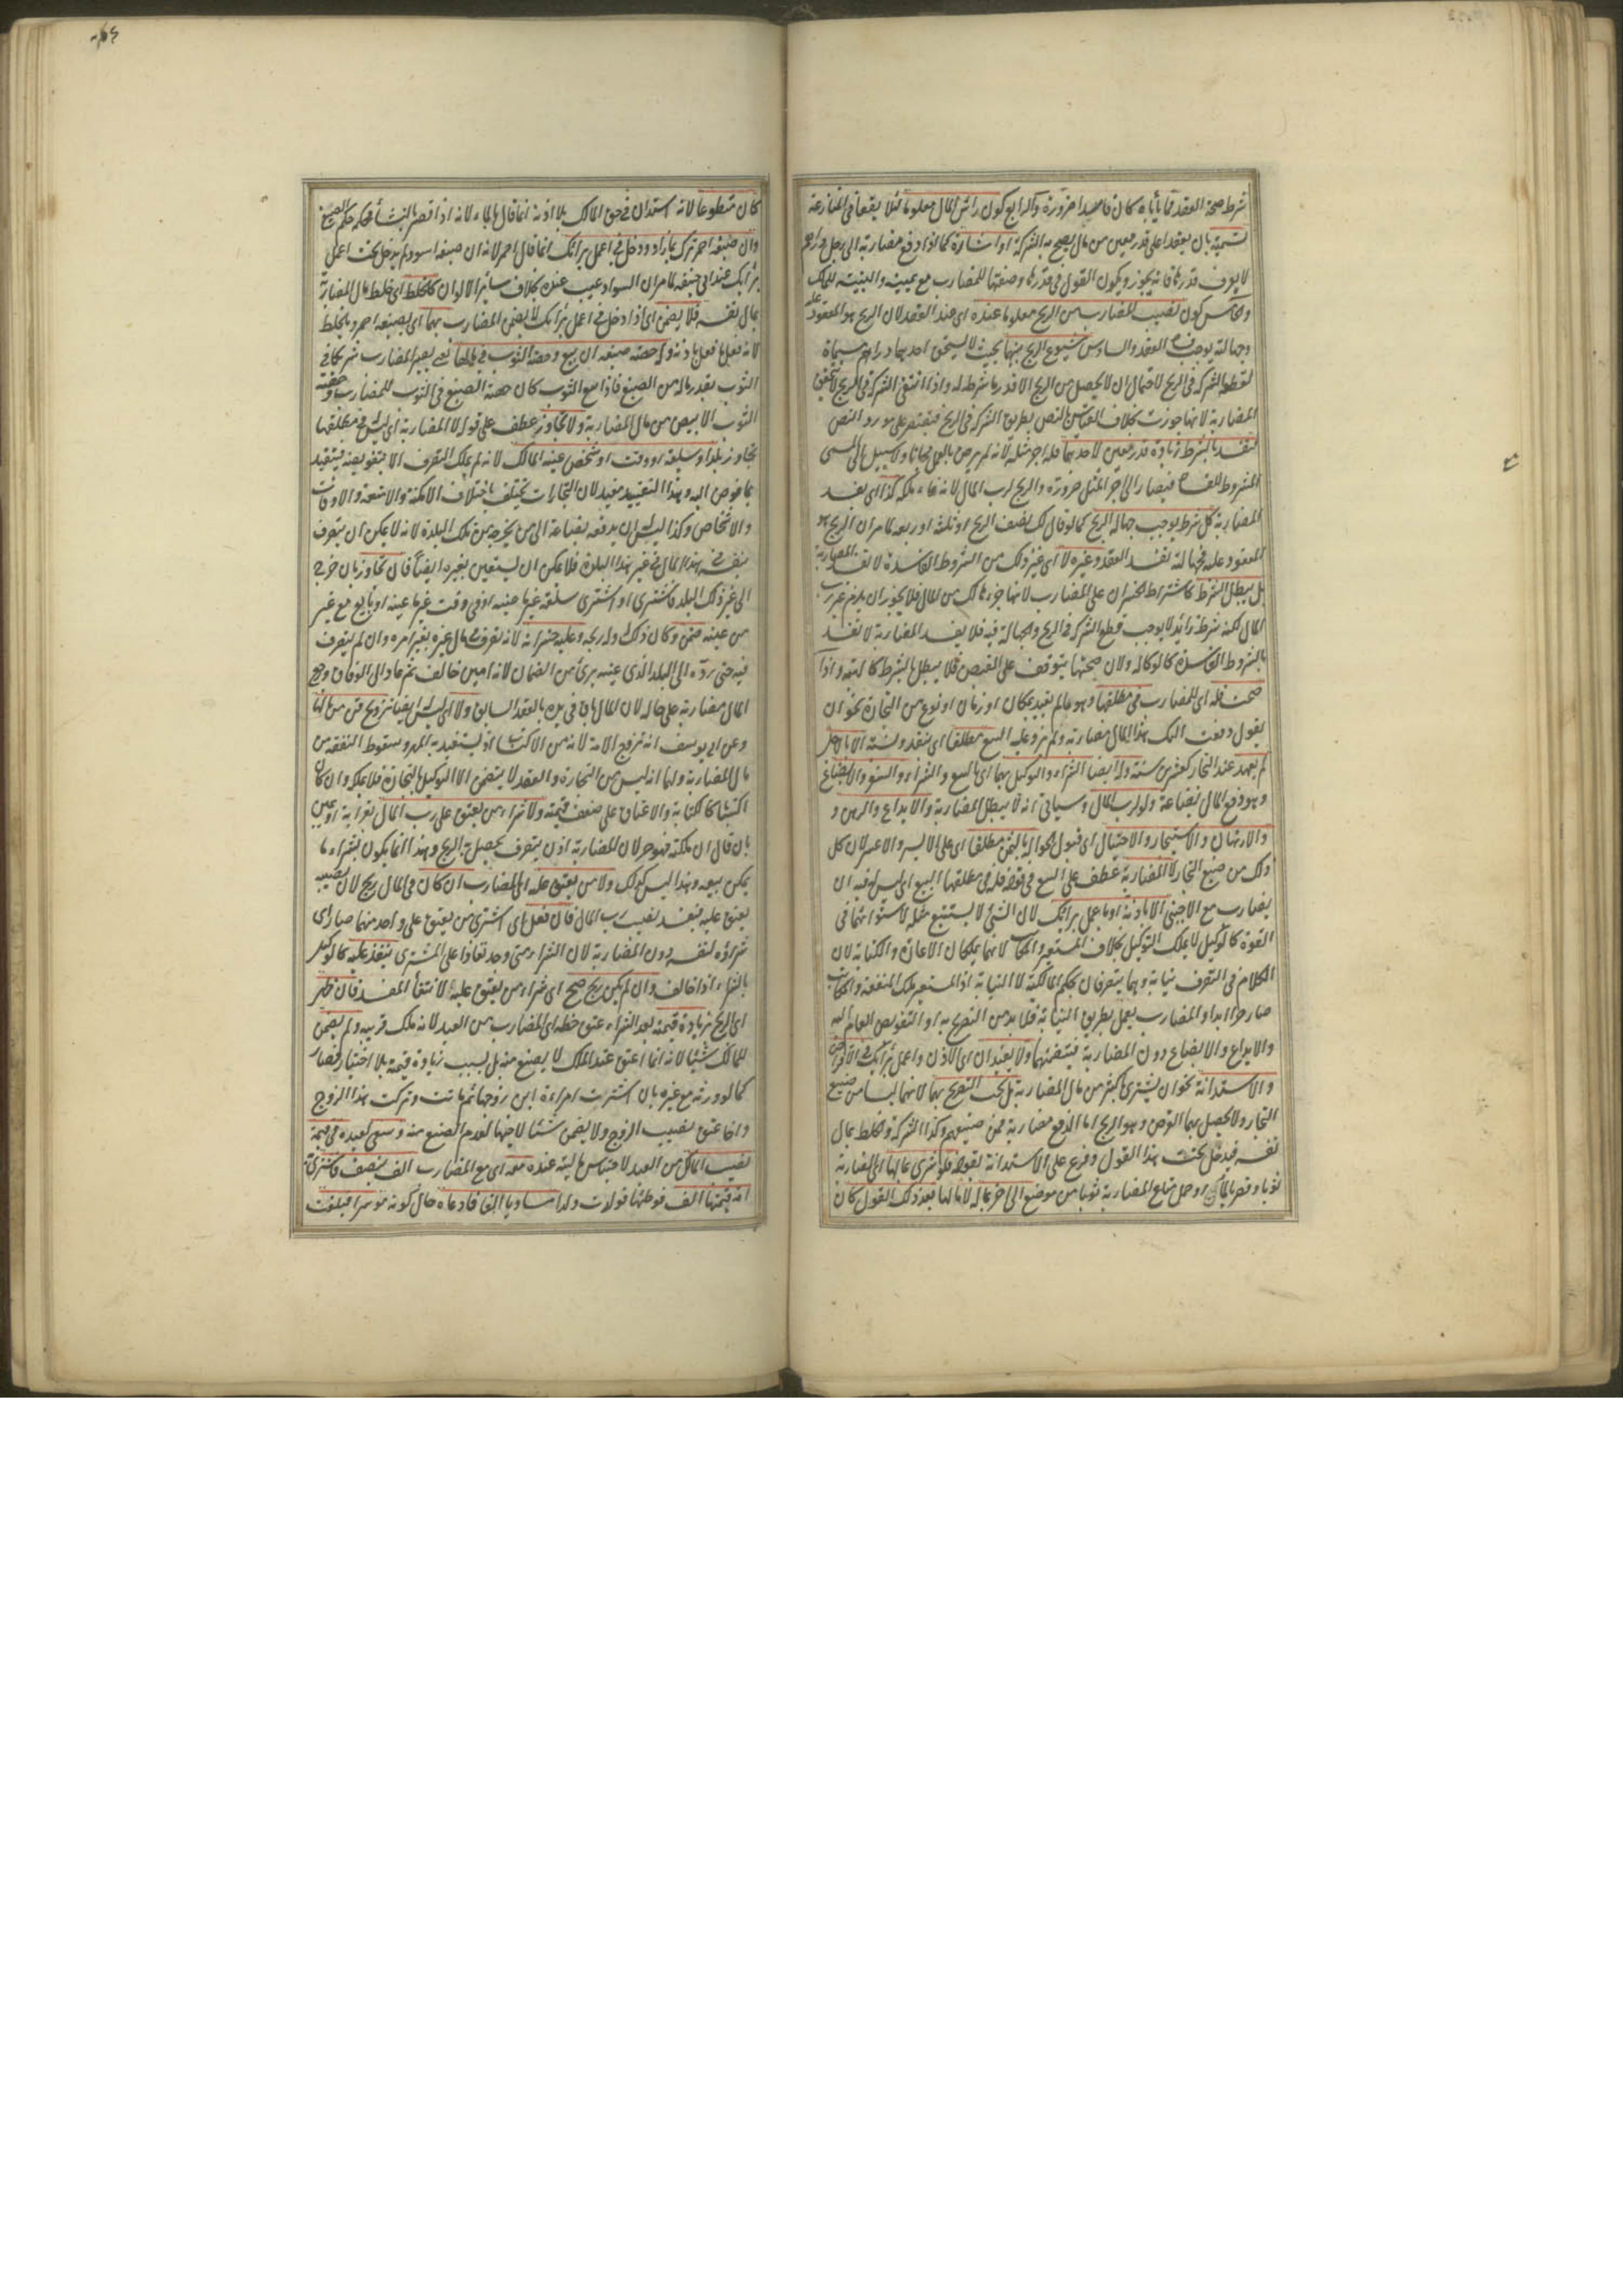 شرط صحة العقد فما يأباه كان فاسدا ضرورة والرابع كون رأس المال معلوما لئلا يقعا في المنازعة
تسمية بان يعقدا على قدر معين من مال يصح به الشركة او اشارة كما اذا دفع مضاربة الى رجل دراهم
لا يعرف قدرها فانه يجوز ويكون القول في قدرها وصفتها للمضارب مع يمينه والبينة للمالك
والخامس كون نصيب المضارب من الربح معلوما عنده اى عند العقد لان الربح هو المعقود عليه
وجهالته يوجب فساد العقد والسادس شيوع الربح بينهما بحيث لا يستحق احدهما دراهم مسماة
لقطعه الشركة في الربح لاحتمال ان لا يحصل من الربح الا قدر ما شرط له واذا انتفى الشركة في الربح لا يتحقق
المضاربة لانها جوزت بخلاف القياس بالنص بطريق الشركة في الربح فيقتصر على مورد النص
فتفسد بالشرط زيادة قدر معين لاحدهما فله اجر مثله لانه لم يرض بالعمل مجانا ولا سبيل الى المسمى
المشروط للفساد فيصار الى اجر المثل ضرورة والربح لرب المال لانه نماء ملكه كذا اى يفسد
المضاربة كل شرط يوجب جهالة الربح كما لو قال لك نصف الربح او ثلثه او ربعه لما مر ان الربح هو
المعقود عليه فجهالته تفسد العقد وغيره لا اى غير ذلك من الشروط الفاسدة لا تفسد المضاربة
بل يبطل الشرط كاشتراط الخسران على المضارب لانها جزء هالك من المال فلا يجوز ان يلزم غير رب
المال لكنه شرط زائد لا يوجب قطع الشركة في الربح والجهالة فيه فلا يفسد المضاربة لا تفسد
بالشروط الفاسدة كالوكالة ولان صحتها يتوقف على القبض فلا يبطل بالشرط كالهبة واذا
صحت فله اى للمضارب في مطلقها وهو ما لم يقيد بمكان او زمان او نوع من التجارة نحو ان
يقول دفعت اليك هذا المال مضاربة ولم يزد عليه البيع مطلقا اى بنقد ونسئة الا باجل
لم يعهد عند التجار كعشرين سنة وله ايضا الشراء والتوكيل بهما اى بالبيع والشراء والسفر والابضاع
وهو دفع المال بضاعة ولو لرب المال وسيأتي انه لا يبطل المضاربة والايداع والرهن و
والارتهان والاستيجار والاحتيال اى قبول الحوالة بالثمن مطلقا اى على الايسر والاعسر لان كل
ذلك من صنيع التجار لا المضاربة عطف على البيع في قوله فله في مطلقها البيع اى ليس له فيه ان
يضارب مع الاجنبي الا باذنه او باعمل برأيك لان الشئ لا يستتبع مثله لاستوائهما في
القوة كالوكيل لا يملك التوكيل بخلاف المستعير والمكاتب لانهما يملكان الاعارة والكتابة لان
الكلام في التصرف نيابة وهما يتصرفان بحكم المالكية لا النيابة اذ المستعير ملك المنفعة والمكاتب
صار حرا يدا والمضارب يعمل بطريق النيابة فلا بد من التصريح به او التفويض العام اليه
والايداع والابضاع دون المضاربة فيتضمنهما ولا يفيدان اى الاذن واعمل برأيك في الاقراض
والاستدانة نحو ان يشترى باكثر من مال المضاربة بل يجب التصريح بهما لانهما ليسا من صنيع
التجار ولا يحصل بهما الغرض وهو الربح اما الدفع مضاربة فمن صنيعهم وكذا الشركة والخلط بمال
نفسه فيدخل تحت هذا القول وفرع على الاستدانة بقوله فلو شرى بمالها اى المضاربة
ثوبا وقصر بالماء او حمل متاع المضاربة ثوبا من موضع الى اخر بماله لا بمالها بعد ذلك القول كان
كان متطوعا لانه استدان في حق المالك بلا اذنه انما قال بالماء لانه اذا قصر بالنشاء فحكمه حكم الصبغ
وان صبغه احمر شرك بما زاد ودخل في اعمل برأيك انما قال احمر لانه ان صبغه اسود لم يدخل تحت اعمل
برأيك عند ابي حنيفة لما مر ان السواد عيب عنده بخلاف سائر الالوان كالخلط اى خلط مال المضاربة
بمال نفسه فلا يضمن اى اذا دخل في اعمل برأيك لا يضمن المضارب بهما اى بصبغه احمر وبالخلط
لانه فعل ما فعل باذنه وله حصة صبغه ان بيع وحصة الثوب في مالها يعنى يصير المضارب شريكا في
الثوب بقدر ماله من الصبغ فاذا بيع الثوب كان حصة الصبغ في الثوب للمضارب وحصة
الثوب الابيض من مال المضاربة ولا تجاوز عطف على قوله لا المضاربة اى ليس في مطلقها
تجاوز بلد او سلعة او وقت او شخص عينه المالك لانه لم يملك التصرف الا بتفويضه فيتقيد
بما فوض اليه وهذا التقييد مفيد لان التجارات يختلف باختلاف الامكنة والامتعة والاوقات
والاشخاص وكذا ليس له ان يدفعه بضاعة الى من يخرجه من تلك البلدة لانه لا يمكن ان يتصرف
بنفسه في هذا المال في غير هذا البلدة فلا يمكن ان يستعين بغيره ايضا فان تجاوز بان خرج
الى غير ذلك البلد فاشترى او اشترى سلعة غير ما عينه او في وقت غير ما عينه او بايع مع غير
من عينه ضمن وكان ذلك وله ربحه وعليه خسرانه لانه تصرف في مال غيره بغير امره وان لم يتصرف
فيه حتى رده الى البلد الذى عينه برئ من الضمان لانه امين خالف ثم عاد الى الوفاق ورجع
المال مضاربة على حاله لان المال باق في يده بالعقد السابق ولا اى ليس له ايضا تزويج قن من مالها
وعن ابي يوسف انه تزوج الامة لانه من الاكتساب اذ يستفيد به المهر وسقوط النفقة من
مال المضاربة ولهما انه ليس من التجارة والعقد لا يتضمن الا التوكيل بالتجارة فلا يملكه وان كان
اكتسابا كالكتابة والاعتاق على ضعف قيمته ولا شراء من يعتق على رب المال بقرابة او يمين
بان قال ان ملكته فهو حر لان المضاربة اذن بتصرف يحصل به الربح وهذا انما يكون بشراء ما
يمكن بيعه وهذا ليس كذلك ولا من يعتق عليه اى المضارب ان كان في المال ربح لان نصيبه
يعتق عليه فيفسد نصيب رب المال فان فعل بان اشترى من يعتق على واحد منهما صار اى
شراؤه لنفسه دون المضاربة لان الشراء متى وجد نفاذا على المشترى ينفذ عليه كالوكيل
بالشراء اذا خالف وان لم يكن ربح صح اى شراء من يعتق عليه لانتفاء المفسد فان ظهر
اى الربح بزيادة قيمته بعد الشراء عتق حظه اى المضارب من العبد لانه ملك قريبه ولم يضمن
للمالك شيئا لانه انما اعتق عند الملك لا بصنع منه بل بسبب زيادة قيمته بلا اختيار فصار
كما لو ورثه مع غيره بان اشترت امراءة ابن زوجها ثم ماتت وتركت هذا الزوج
واخا عتق نصيب الزوج ولا يضمن شيئا لاخيها لعدم الصنع منه وسعى العبد في قيمة
نصيب المالك من العبد لاحتباس ماليته عنده معه اى مع المضارب الف بنصف فاشترى
امة قيمتها الف فوطئها فولدت ولدا مساويا الفا فادعاه حال كونه موسرا فبلغت